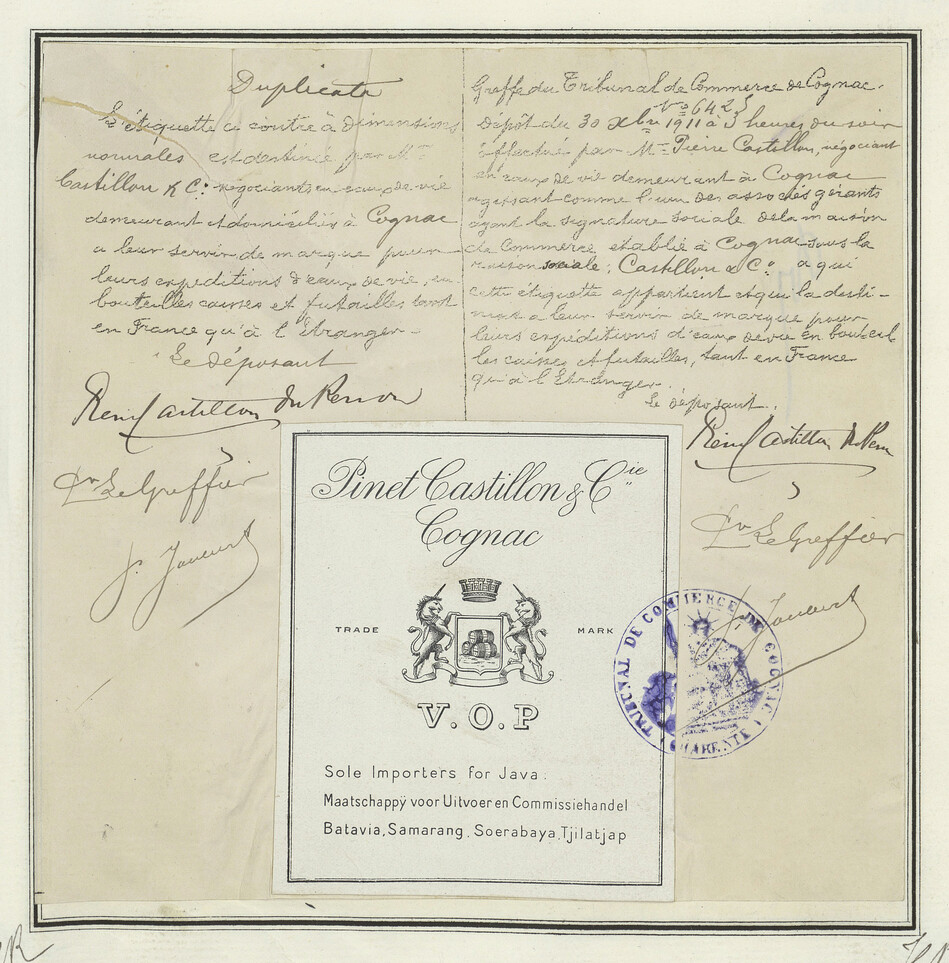 Duplicata
L'étiquette ci contre à dimensions
normales est destinée par MM
Castillon & Cº négociants en eaux de vie
demeurant et domiciliés à Cognac
a leur servir de marque pour
leurs expeditions d'eaux de vie, en
bouteilles caisses et futailles tant
en France qu'à l'Etranger
Le déposant
Castillon du Perron
Pr Le Greffier
Greffe du Tribunal de Commerce de Cognac.
Nº 6423
Dépôt du 30 Xbre 1911 à 3 heures du soir
effectué par Mr Pierre Castillon, négociant
en eaux de vie demeurant à Cognac
agissant comme l'un des associés gérants
ayant la signature sociale de la maison
de Commerce établie à Cognac sous la
raison sociale; Castillon & Cº a qui
cette étiquette appartient et qui la desti-
nent a leur servir de marque pour
leurs expéditions d'eaux de vie en bouteil
les caisses et futailles, tant en France
qu'à l'Etranger.
Le déposant.
Castillon du Perron
Pr Le Greffier
Pinet Castillon & Cie
Cognac
TRADE MARK
V.O.P
Sole Importers for Java.
Maatschappÿ voor Uitvoer en Commissiehandel
Batavia, Samarang. Soerabaya, Tjilatjap
TRIBUNAL DE COMMERCE DE COGNAC
(CHARENTE)